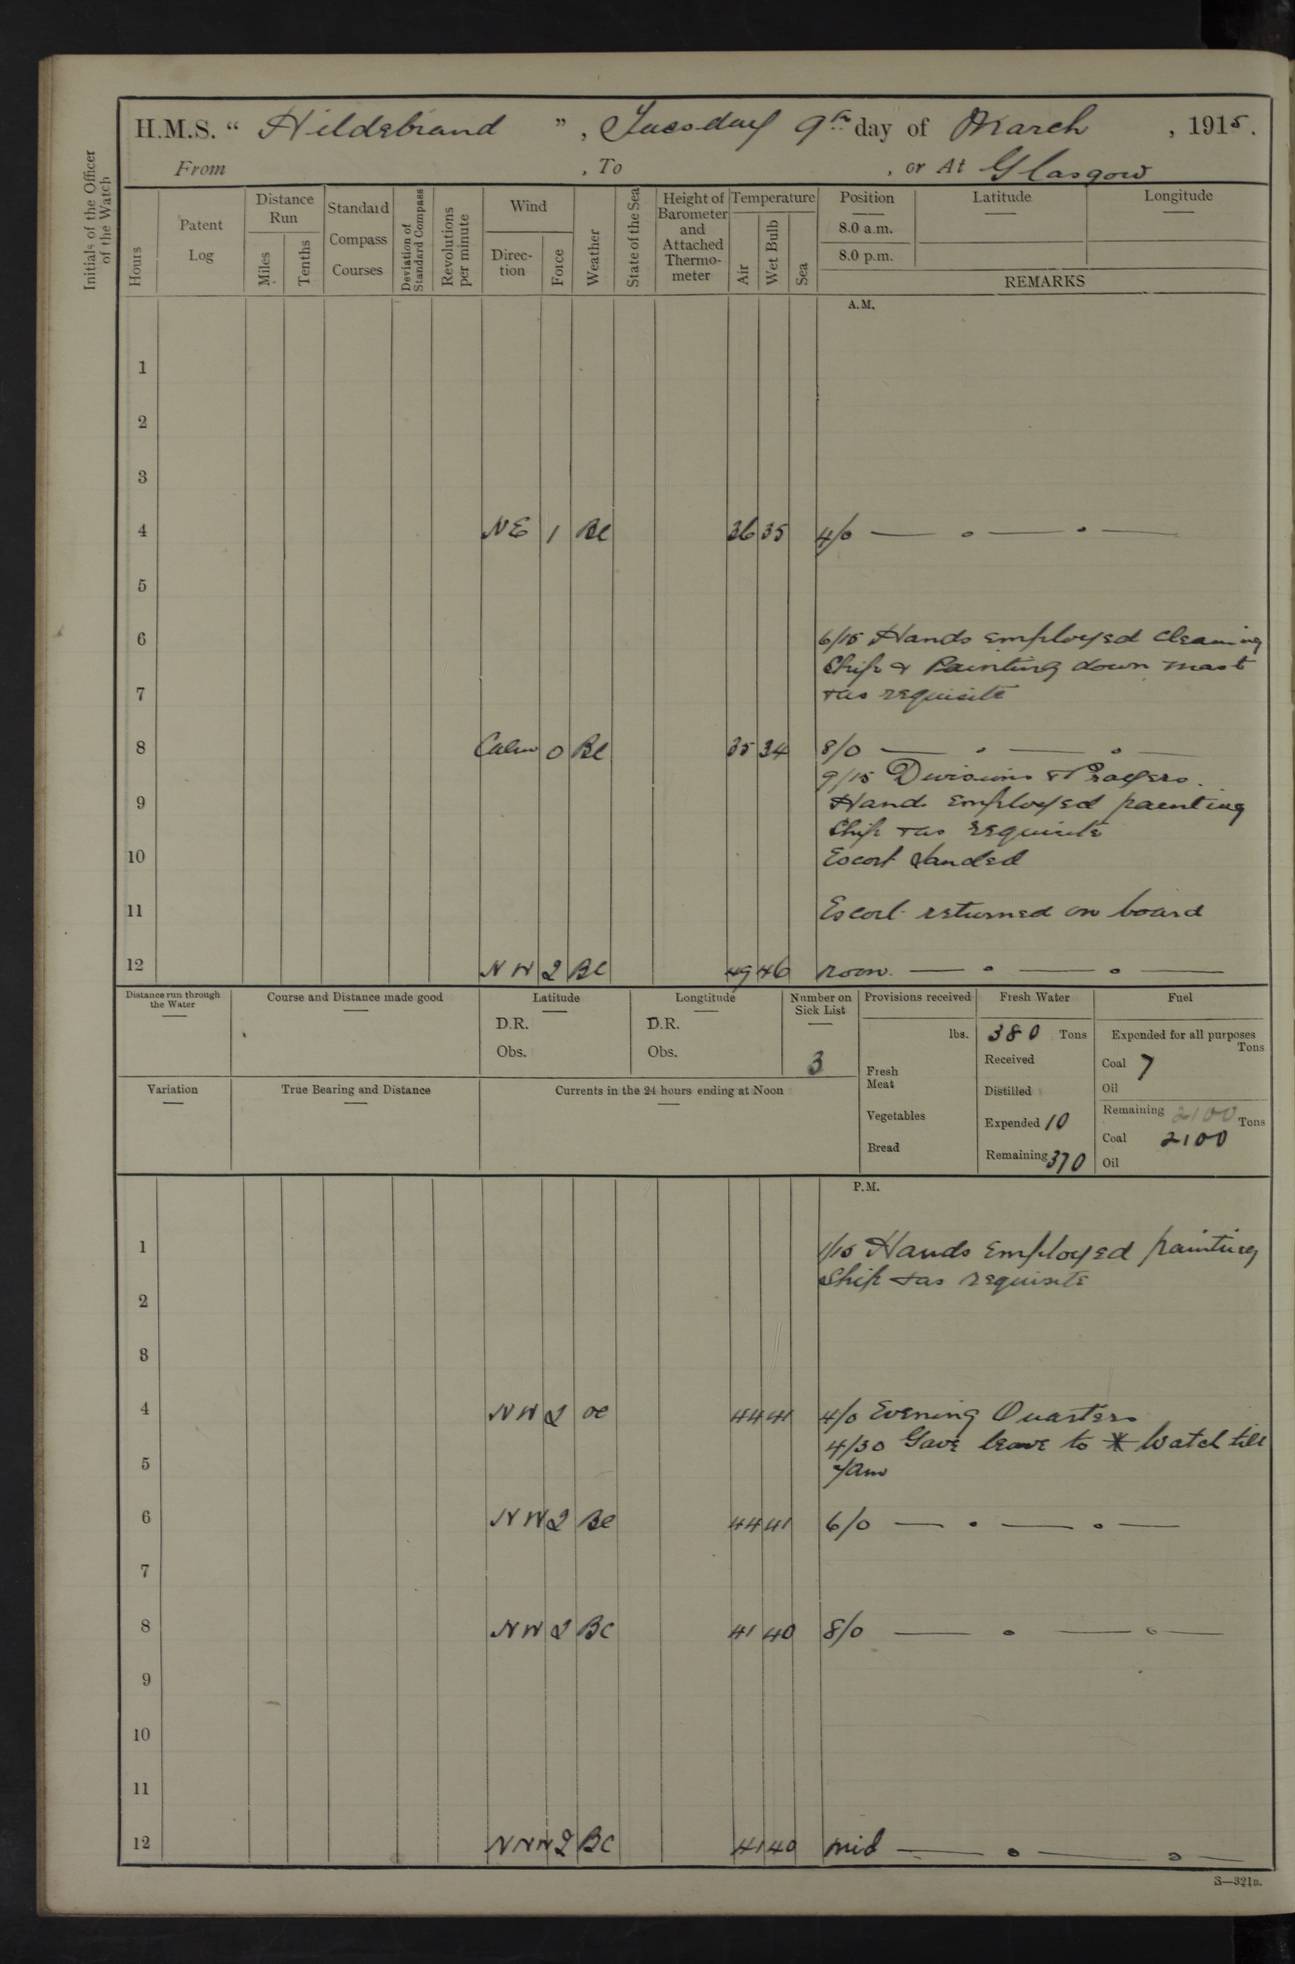 H.M.S. “ Hildebrand ”, Tuesday 9th day of March, 1915.
From , To , or At Glasgow
Initials of the Officer of the Watch
Hours
Patent Log
Distance Run
Miles
Tenths
Standard Compass Courses
Deviation of Standard Compass
Revolutions per minute
Wind
Direction
Force
Weather
State of the Sea
Height of Barometer and Attached Thermometer
Temperature
Air
Wet Bulb
Sea
Position
8.0 a.m.
8.0 p.m.
Latitude
Longitude
REMARKS
A.M.
1
2
3
4 NE 1 Bc 36 35 4/0 — o — o —
5
6 6/15 Hands employed cleaning
Ship & Painting down mast
7 & as requisite
8 Calm 0 Bc 35 34 8/0 — o — o —
9/15 Divisions & Prayers.
9 Hands employed painting
Ship & as requisite
10 Escort Landed
11 Escort returned on board
12 NW 2 BC 49 46 noon — o — o —
Distance run through the Water
Course and Distance made good
Latitude
D.R.
Obs.
Longtitude
D.R.
Obs.
Number on Sick List
3
Provisions received
lbs.
Fresh Meat
Vegetables
Bread
Fresh Water
380 Tons
Received
Distilled
Expended 10
Remaining 370
Fuel
Expended for all purposes
Tons
Coal 7
Oil
Remaining 2100 Tons
Coal 2100
Oil
Variation
True Bearing and Distance
Currents in the 24 hours ending at Noon
P.M.
1 1/15 Hands employed painting
Ship & as requisite
2
3
4 NW 2 oc 44 41 4/0 Evening Quarters
4/30 Gave leave to Watch till
5 7am
6 NW 2 Bc 44 41 6/0 — o — o —
7
8 NW 2 BC 41 40 8/0 — o — o —
9
10
11
12 NNW 2 BC 41 40 mid — o — o —
S—321B.